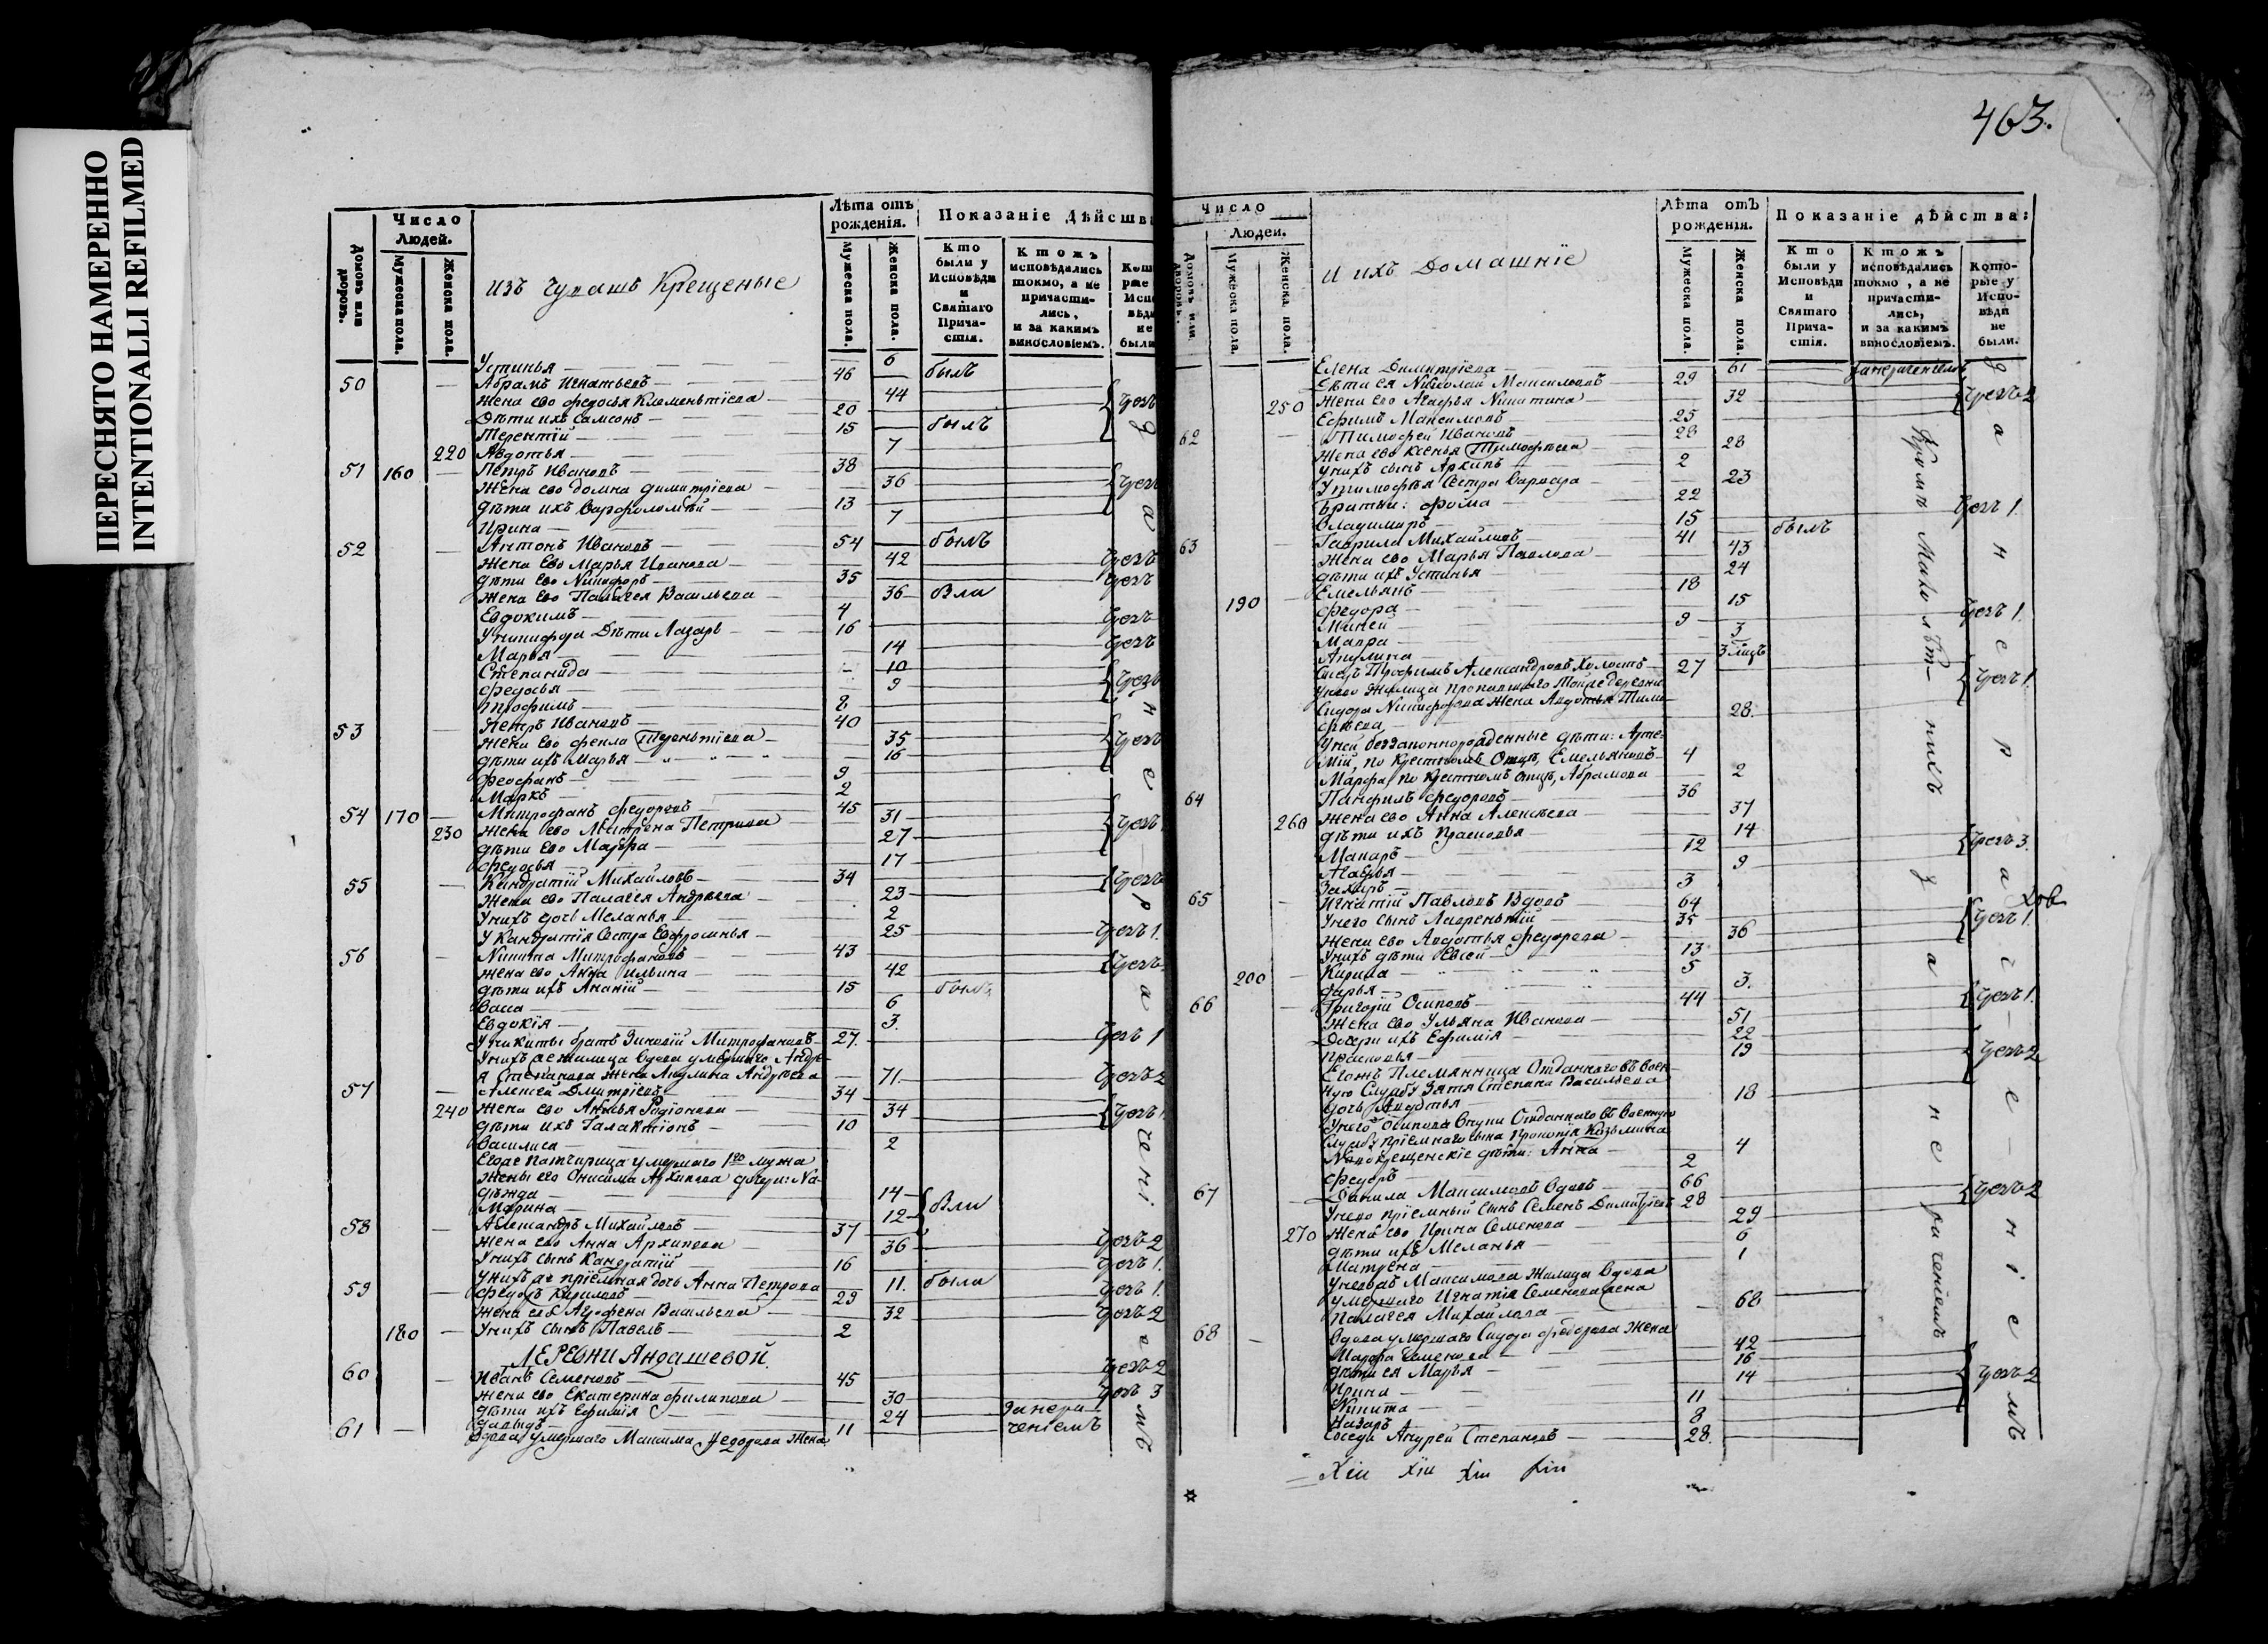 ПЕРЕСНЯТО НАМЕРЕННО
INTENTIONALLI REFILMED
463.
Домовъ или дворовъ.
Число Людей.
Мужеска пола.
Женска пола.
изъ чувашъ Крещеные
Лѣта отъ рожденія.
Мужеска пола.
Женска пола.
Показаніе Дѣйства
Кто были у Исповѣди и Святаго Прича-стія.
Ктожъ исповѣдались токмо, а не причасти-лись, и за какимъ винословіемъ.
Устинья 6 былъ
50 Абрамъ Игнатьевъ 46
жена ево федосья Клеменьтіева 44
Дѣти ихъ Самсонъ 20
Терентій 15 былъ
220 Авдотья 7
51 160 Петръ Ивановъ 38
Жена ево домна димитріева 36
дѣти ихъ Варфоломѣй 13
Ирина 7
52 Антонъ Ивановъ 54 былъ
Жена Ево Марья Иванова 42
дѣти Ево Никифоръ 35
жена Ево Палагея Васильева 36
Евдокимъ 4
У никифора Дѣти Лазарь 16
Марья 14
Степанида 10
федосья 9
трофимъ 2
53 Петръ Ивановъ 40
Жена Ево фекла Терентіева 35
дѣти ихъ Марья 16
феофанъ 9
Маркъ 2
54 170 Митрофанъ федоровъ 45
230 Жена ево Матрена Петрова 31
дѣти Ево Мавра 27
федосья 17
55 Кандратій Михайловъ 34
Жена ево Палагея Андрѣева 23
Унихъ дочь Меланья 2
У Кандратія Сестра Ефросинья 25
56 Никита Митрофановъ 43
жена ево Анна ильина 42
дѣти ихъ Ананій 15 былъ
Васса 6
Евдокія 3.
У никиты братъ Зиновій Митрофановъ 27.
Унихъ же жилица вдова умершаго Андре-
я Степанова жена Акулина Андрѣева 71
57 Алексей Дмитріевъ 34
240 Жена ево Авдотья Родіонова 34
дѣти ихъ Галактіонъ 10
Василиса 2
Егоже патчерица умершаго 1го мужа
жены его Онисима Архипова дочери: На-
дѣжда 14
Марина 12
58 Александръ Михайловъ 37
жена ево Анна Архипова 36
Унихъ сынъ Кандратій 16
Унихъ же пріемная дочь Анна Петрова 11. была
59 федоръ Кириловъ 29
Жена его Аграфена Васильева 32
180 Унихъ сынъ Павелъ 2
ДЕРЕВНИ Яндашевой.
60 Иванъ Семеновъ 45
жена ево Екатерина филипова 30
дѣти ихъ Ефимія 24 За нера-
давыдъ 11 ченіемъ
61 Вдова умершаго Максима федорова жена
Домовъ или дворовъ.
Число Людей.
Мужеска пола.
Женска пола.
и ихъ Домашніе
Лѣта отъ рожденія.
Мужеска пола.
Женска пола.
Показаніе дѣйства:
Кто были у Исповѣди и Святаго Прича-стія.
Ктожъ исповѣдались токмо, а не причасти-лись, и за какимъ винословіемъ.
Кото-рые у Испо-вѣди не были.
Елена Димитріева 61
Дѣти ея Николай Максимовъ 29
250 Жена его Агафья Никитина 32
Ефимъ Максимовъ 25
62 Тимофей Ивановъ 28
Жена ево ксенья Тимофѣева 28
Унихъ сынъ Архипъ 2
У тимофѣя Сестра Варвара 23
братки: фома 22
Владимиръ 15 былъ
63 Гаврила Михайловъ 41
Жена ево Марья Павлова 43
дѣти ихъ Устинья 24
190 Емельянъ 18
федора 15
Миней 9
Мавра 3
Акулина
Трофимъ Александровъ Холостъ 27
Унего Жилица пропавшаго Тойже деревни
Сидора Никифорова жена Авдотья Тимо-
фѣева 28.
Уней беззаконнорожденные дѣти: Арте-
мій, по Крестномъ Отцѣ, Емельяновъ 4
Марфа, по Крестномъ отцѣ, Абрамова 2
64 Панфилъ федоровъ 36
260 жена ево Анна Алексѣева 37
дѣти ихъ Прасковья 14
Макаръ 12
Агафья 9
Захаръ 3
65 Игнатій Павловъ Вдовъ 64
Унего сынъ Лаврентій 35
Жена ево Авдотья федорова 36
Унихъ дѣти Евсей 13
200 Кирила 5
дарья 3.
66 Григорій Осиповъ 44
Жена ево Ульяна Иванова 51
Дочери ихъ Ефимія 22
Прасковья 19
Егожъ Племянница Отданнаго въ воен-
ную Службу Зятя Степана Васильева
дочь Авдотья 18
Унего Осипова Внуки Отданнаго въ военную
Службу пріемнаго сына Прокопія Козьмина
Новокрещенскіе дѣти: Анна 4
федоръ 2
67 Данила Максимовъ Вдовъ 66
Унего пріемный сынъ Семенъ Димитріевъ 28
270 жена ево Ирина Семенова 29
дѣти ихъ Меланья 6
Матрена 1
Унегожъ Максимова жилица Вдова
умершаго Игнатія Семенова жена
Палагея Михайлова 68
68 Вдова умершаго Сидора федорова жена
Марфа Семенова 42
дѣти ея Марья 16
Ирина 14
Никита 11
Назаръ 8
Соседъ Андрей Степановъ 28.
Кромѣ Малолѣт-нихъ за нераченіемъ
за нераченіемъ